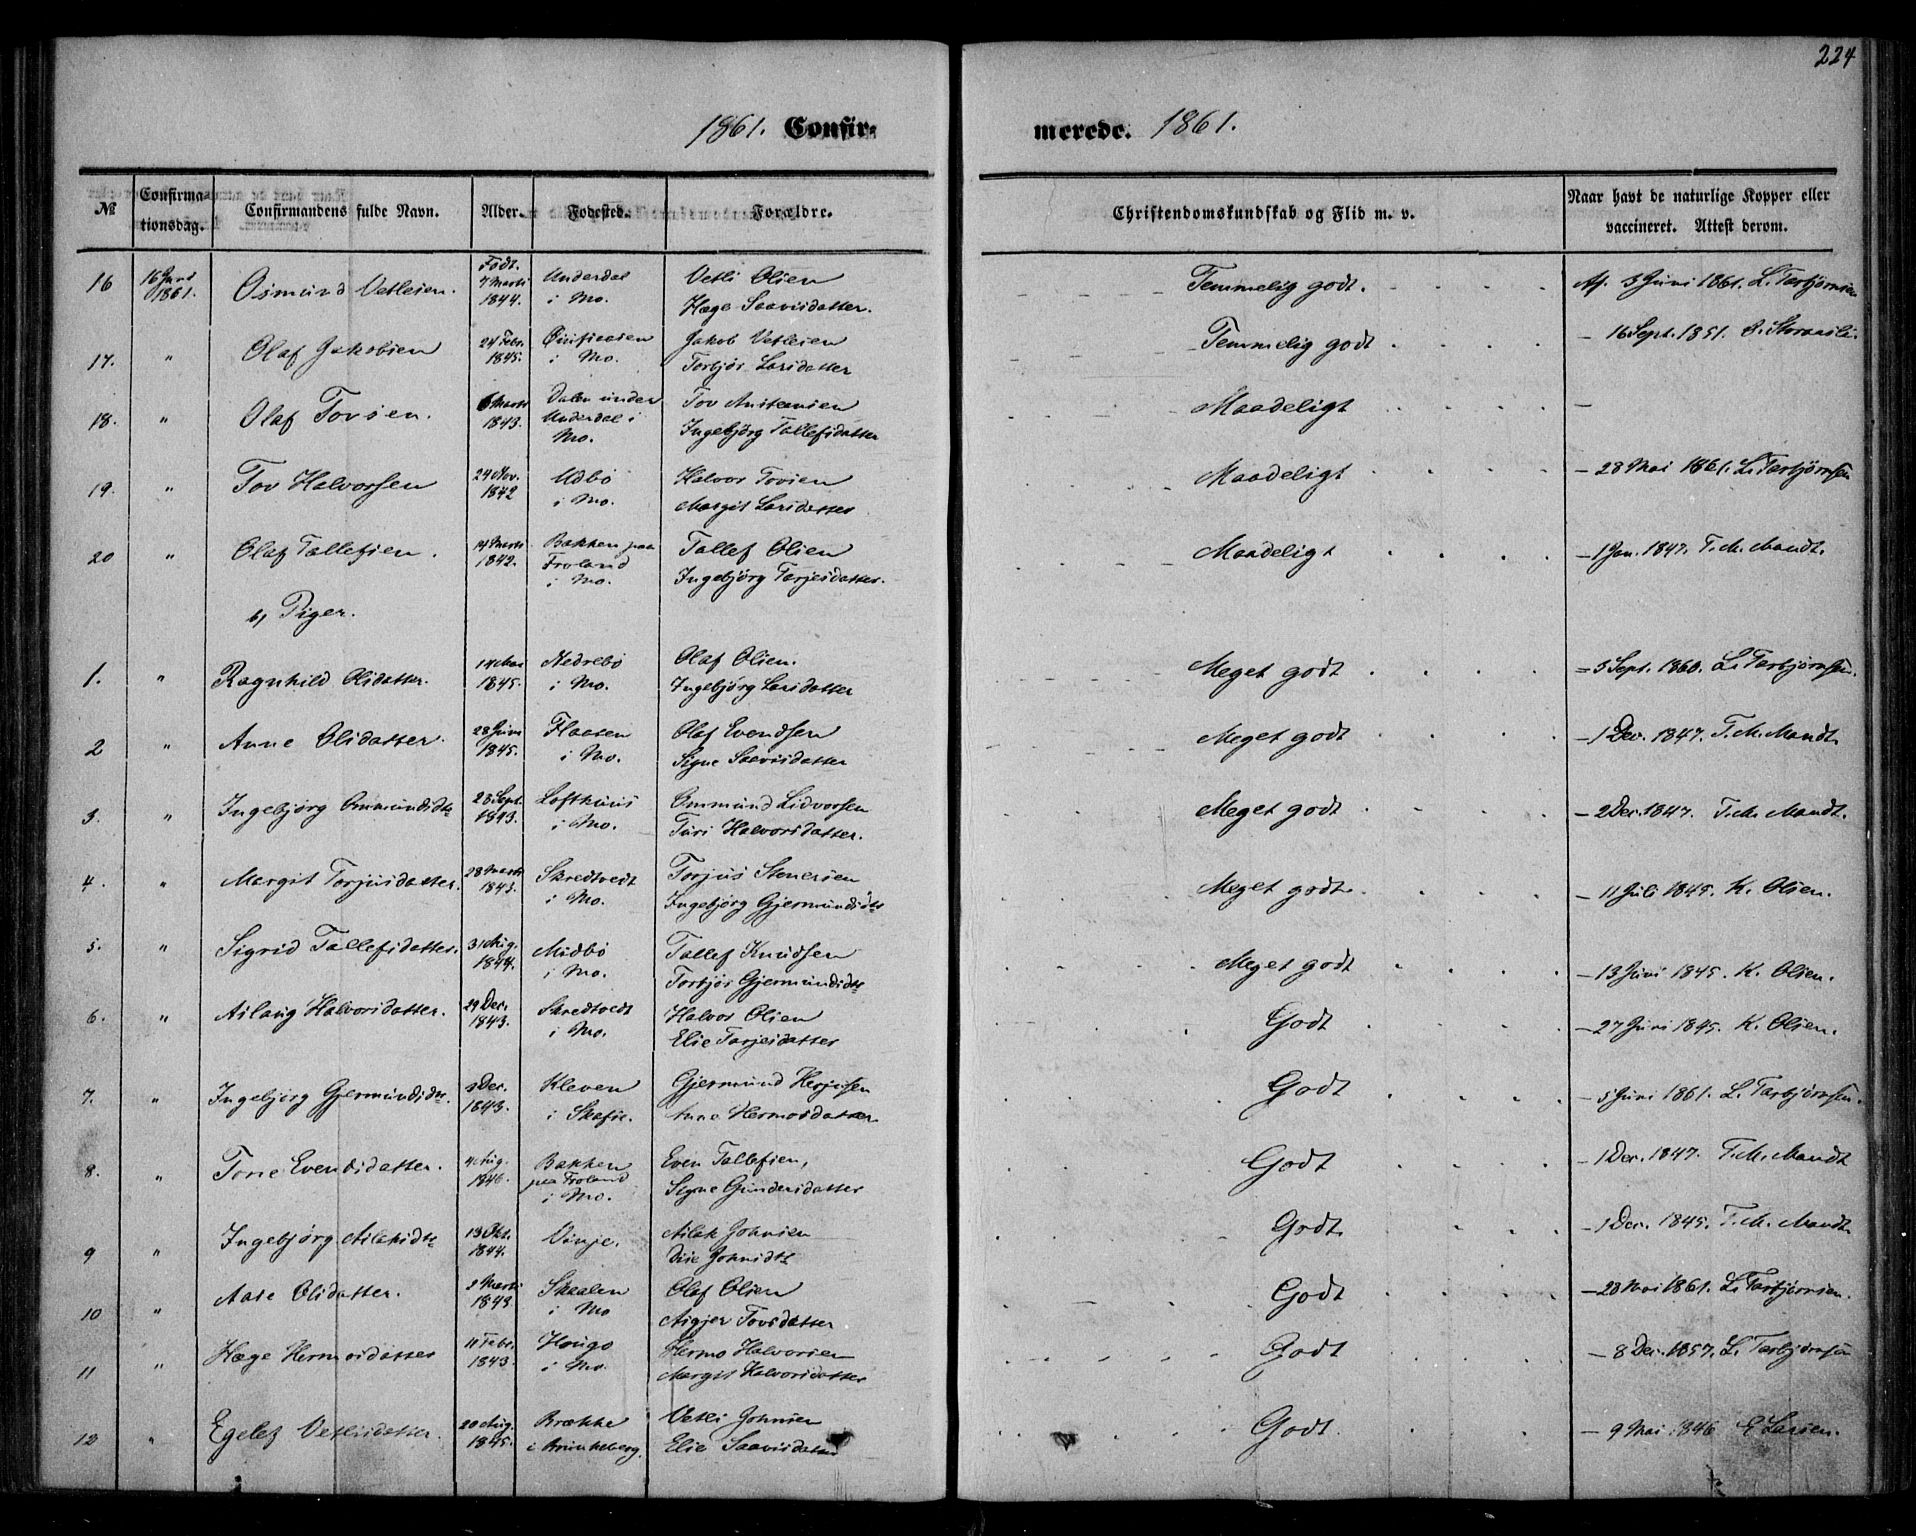 224
1861. Confir-
merede. 1861.
№
Confirma-
tionsdag.
Confirmandens fulde Navn.
Alder.
Fødested.
Forældre.
Christendomskundskab og Flid m. v.
Naar havt de naturlige Kopper eller
vaccineret. Attest derom.
16 16 Juni 1861. Osmund Vetlesen. Født. 7 Marts 1844. Underdal i Mo. Vetli Olsen Hæge Saavisdatter. Temmelig godt. Af. 3 Juni 1861. L. Tarbjørnsen
17. " Olaf Jakobsen 24 Febr. 1845. i Mo. Jakob Vetlesen Torbjør Larsdatter Temmelig godt - 16 Sept. 1851.
18. " Olaf Tovsen. 6 Marts 1843. Dalen under Underdal i Mo. Tov Austensen Ingebjørg Tallefsdatter Maadeligt -
19. " Tov Halvorsen 24 Nov. 1842 Udbø i Mo. Halvor Tovsen Margit Larsdatter Maadeligt - 28 Mai 1861. L. Tarbjørnsen
20 " Olaf Tallefsen. 14 Marts 1842. Bakken paa Froland i Mo. Tallef Olsen Ingebjørg Tarjesdatter. Maadeligt - 1 Jan. 1847. T. M. Mandt.
b, Piger.
1. " Ragnhild Olsdatter. 14 Mai 1845. Nedrebø i Mo. Olaf Olsen. Ingebjørg Larsdatter Meget godt - 5 Sept. 1860. L. Tarbjørnsen.
2 " Anne Olsdatter. 28 Juni 1845. Flaaten i Mo. Olaf Evendsen Signe Saavisdatter Meget godt - 1 Dec. 1847. T. M. Mandt.
3. " Ingebjørg Ommundsdtr 28 Sept. 1843. Lofthuus i Mo. Ommund Lidvorsen Turi Halvorsdatter. Meget godt - 2 Dec. 1847. T. M. Mandt.
4. " Margit Torjusdatter. 28 Marts 1843. Skredtvedt i Mo. Torjus Stenersen Ingebjørg Gjermundsdtr Meget godt. - 11 Juli 1845. K. Olsen.
5. " Sigrid Tallefsdatter. 31 Aug. 1844. Midbø i Mo. Tallef Knudsen Torbjør Gjermundsdtr Meget godt - 13 Juni 1845. K. Olsen.
6. " Aslaug Halvorsdatter. 29 Dec. 1843. Skredtvedt i Mo. Halvor Olsen Elie Tarjesdatter Godt - 27 Juni 1845. K. Olsen.
7. " Ingebjørg Gjermundsdtr. Dec. 1843. Kleven i Skafse. Gjermund Herjusen Anne Hermosdatter Godt - 5 Juni 1861. L. Tarbjørnsen.
8. " Tone Evendsdatter. 4 Aug. 1846. Bakken paa Froland i Mo. Even Tallefsen, Signe Gundersdatter Godt - 1 Dec. 1847. T. M. Mandt
9 " Ingebjørg Aslaksdtr 13 Okt. 1844. Vinje. Aslak Johnsen Johnsdtr Godt. - 1 Dec. 1845. T. M. Mandt
10 " Aase Olsdatter. 9 Marts 1843 Skaalen i Mo Olaf Olsen Aigjer Tovsdatter Godt - 28 Mai 1861. L. Tarbjørnsen.
11 " Hæge Hermosdatter 11 Febr. 1843 Hougo i Mo. Hermo Halvorsen Margit Halvorsdatter Godt - 8 Dec. 1857. L. Tarbjørnsen
12 " Egelef Vetlisdatter. 20 Aug. 1845. Brække i Brunkeberg. Vetli Johnsen Elie Saavisdatter Godt. - 9 Mai 1846 E Larsen.